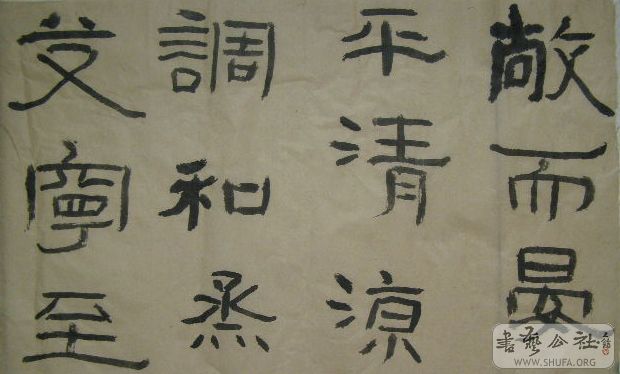 敞而晏
平清涼
調和烝
艾寧至
書藝公社
WWW.SHUFA.ORG